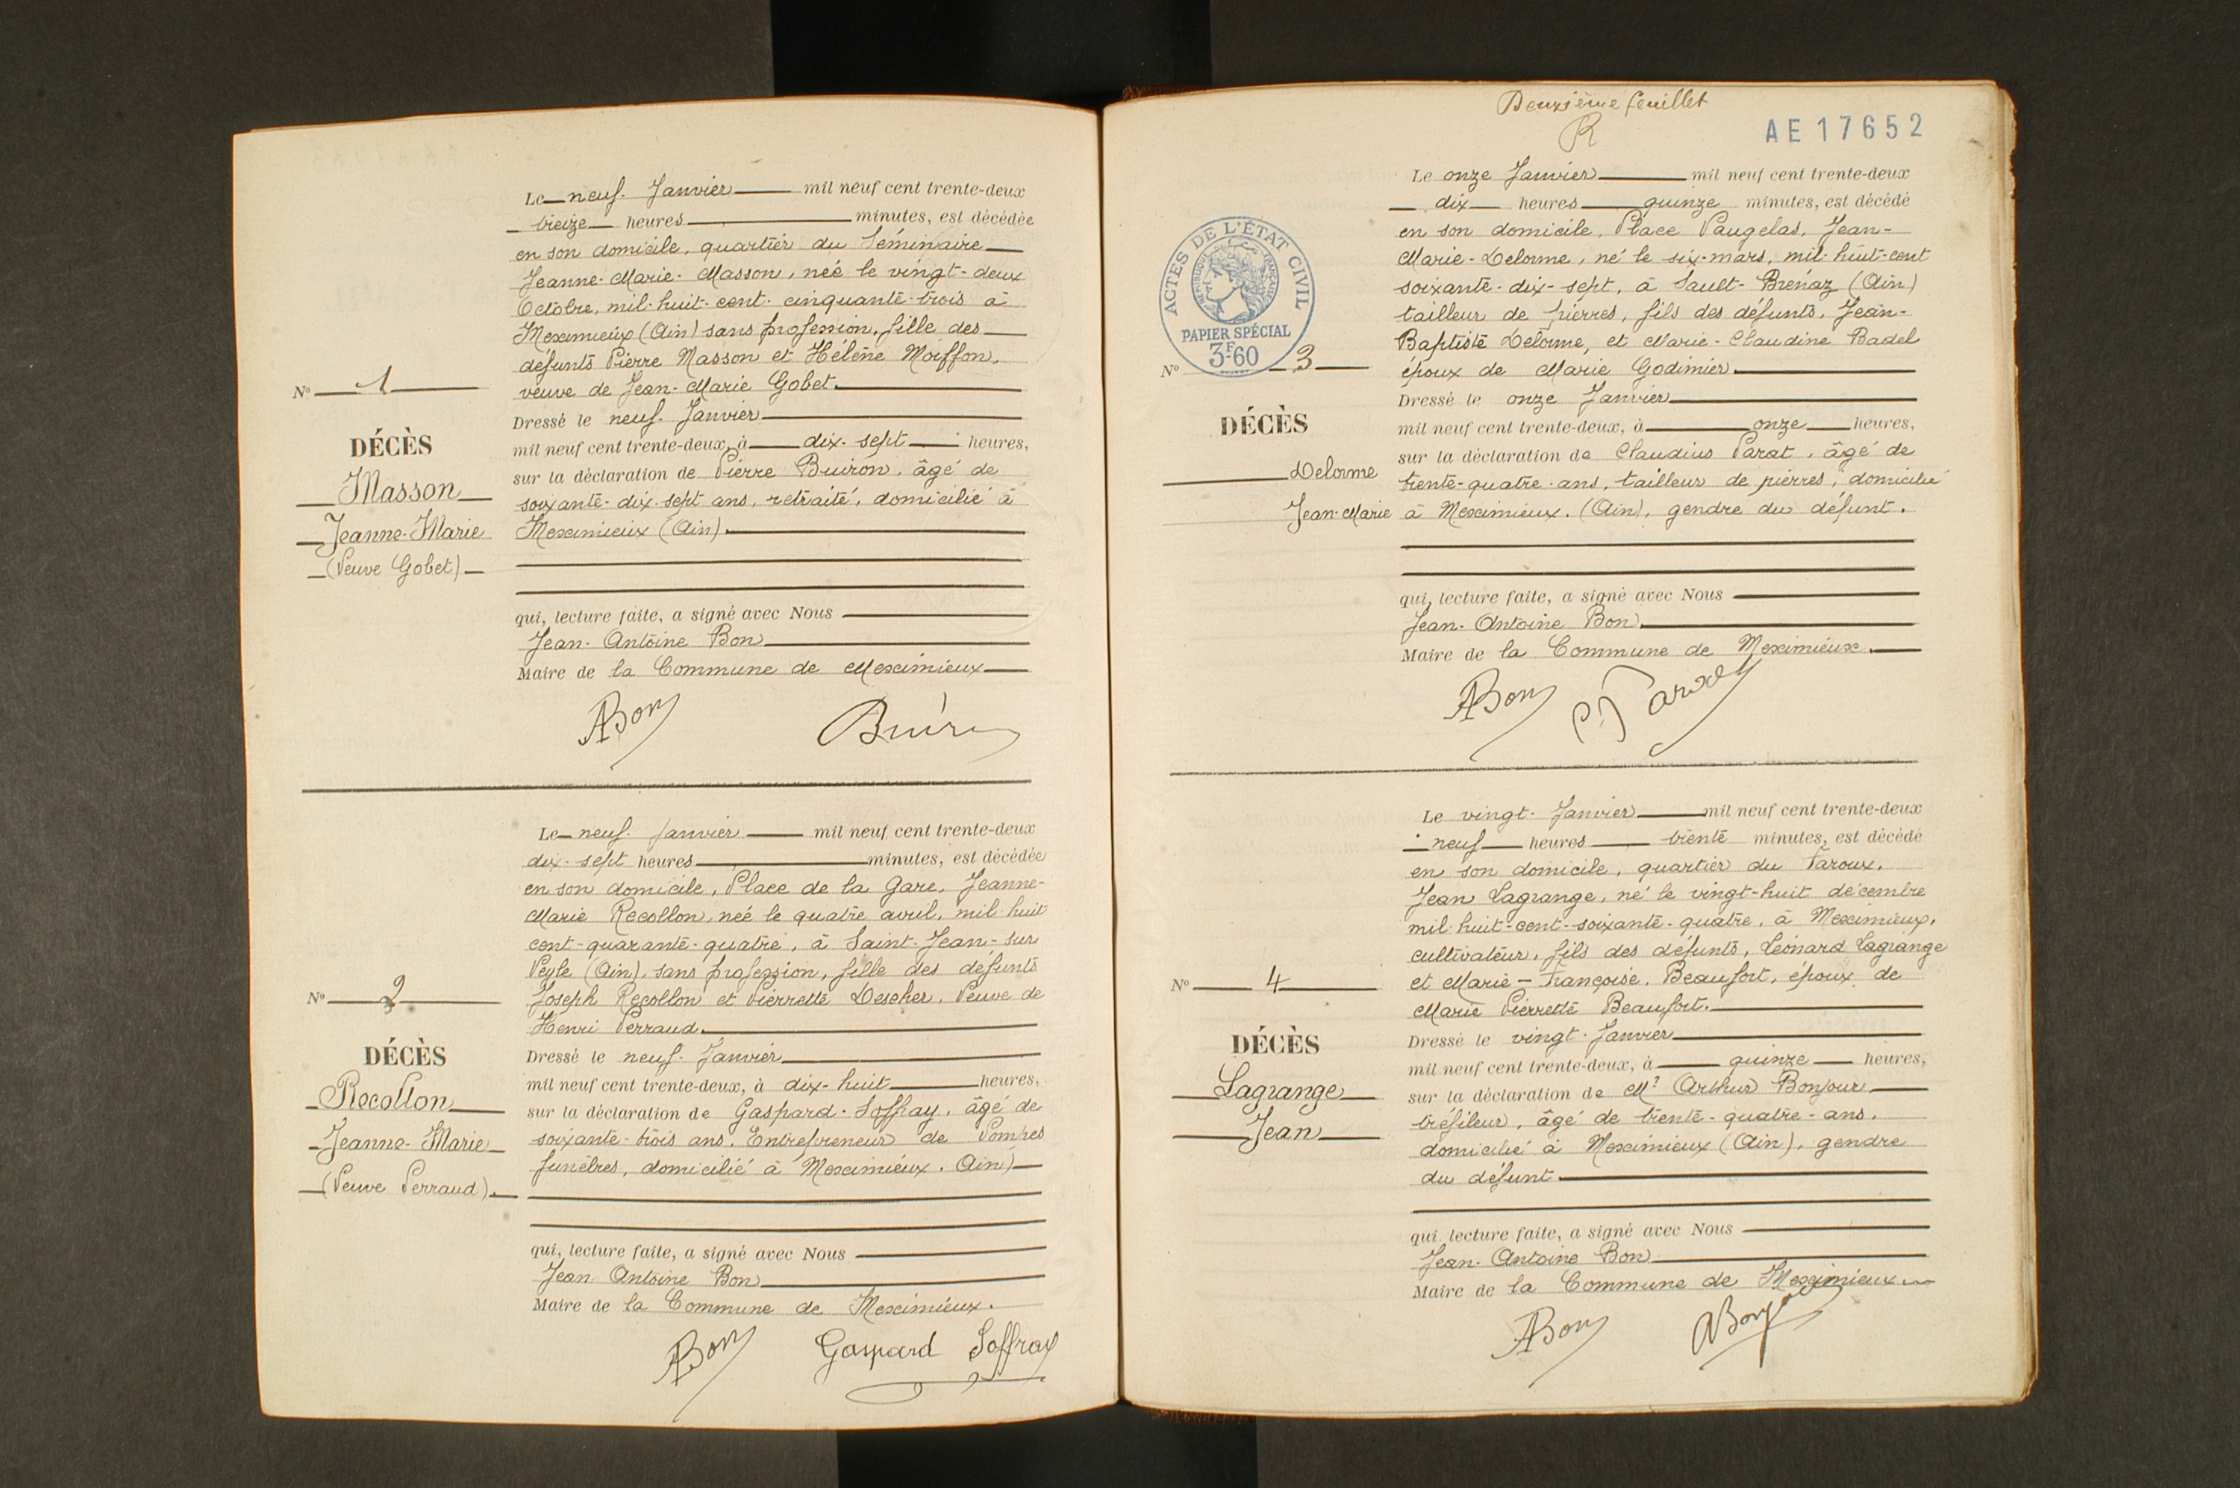 Le neuf. Janvier mil neuf cent trente-deux
treize heures minutes, est décédée
en son domicile, quartier du Séminaire
Jeanne-Marie-Masson, née le vingt-deux
Octobre, mil-huit-cent-cinquante-trois à
Meximieux (Ain) sans profession, fille des
défunts Pierre Masson et Hélène Moiffon,
veuve de Jean-Marie Gobet.
Dressé le neuf. Janvier
mil neuf cent trente-deux, à dix-sept heures,
sur la déclaration de Pierre Buiron, âgé de
soixante-dix-sept ans, retraité, domicilié à
Meximieux (Ain).
qui, lecture faite, a signé avec Nous
Jean-Antoine Bon
Maire de la Commune de Meximieux
ABon Buiron
N° 1
DÉCÈS
Masson
Jeanne-Marie
(Veuve Gobet)
Le neuf. Janvier mil neuf cent trente-deux
dix-sept heures minutes, est décédée
en son domicile, Place de la Gare, Jeanne-
Marie Recollon, née le quatre avril, mil-huit
cent-quarante-quatre, à Saint-Jean-sur
Veyle (Ain), sans profession, fille des défunts
Joseph Recollon et Pierrette Descher. Veuve de
Henri Perraud.
Dressé le neuf. Janvier
mil neuf cent trente-deux, à dix-huit heures,
sur la déclaration de Gaspard. Soffray, âgé de
soixante-trois ans, Entrepreneur de Pompes
funèbres, domicilié à Meximieux. Ain)
qui, lecture faite, a signé avec Nous
Jean Antoine Bon
Maire de la Commune de Meximieux.
ABon Gaspard Soffray
N° 2
DÉCÈS
Recollon
Jeanne-Marie
(Veuve Perraud).
Deuxième feuillet
R
AE17652
Le onze Janvier mil neuf cent trente-deux
dix heures quinze minutes, est décédé
en son domicile, Place Vaugelas, Jean-
Marie-Delorme, né le six-mars, mil-huit-cent
soixante-dix-sept, à Sault-Brénaz (Ain)
tailleur de pierres, fils des défunts, Jean-
Baptiste Delorme, et Marie-Claudine Badel
époux de Marie Godimier
Dressé le onze Janvier
mil neuf cent trente-deux, à onze heures,
sur la déclaration de Claudius Parat, âgé de
trente-quatre-ans, tailleur de pierres, domicilié
à Meximieux. (Ain), gendre du défunt.
qui, lecture faite, a signé avec Nous
Jean-Antoine Bon,
Maire de la Commune de Meximieux.
ABon
ACTES DE L'ÉTAT CIVIL
RÉPUBLIQUE FRANÇAISE
PAPIER SPÉCIAL
3F60
N° 3
DÉCÈS
Delorme
Jean-Marie
Le vingt-Janvier mil neuf cent trente-deux
neuf heures trente minutes, est décédé
en son domicile, quartier du Faroux,
Jean Lagrange, né le vingt-huit décembre
mil-huit-cent-soixante-quatre, à Meximieux,
cultivateur, fils des défunts, Léonard Lagrange
et Marie-Françoise. Beaufort, époux de
Marie Pierrette Beaufort.
Dressé le vingt-Janvier
mil neuf cent trente-deux, à quinze heures,
sur la déclaration de Mr Arthur Bonjour
tréfileur, âgé de trente-quatre-ans,
domicilié à Meximieux (Ain), gendre
du défunt
qui, lecture faite, a signé avec Nous
Jean-Antoine Bon
Maire de la Commune de Meximieux
ABon ABonjour
N° 4
DÉCÈS
Lagrange
Jean